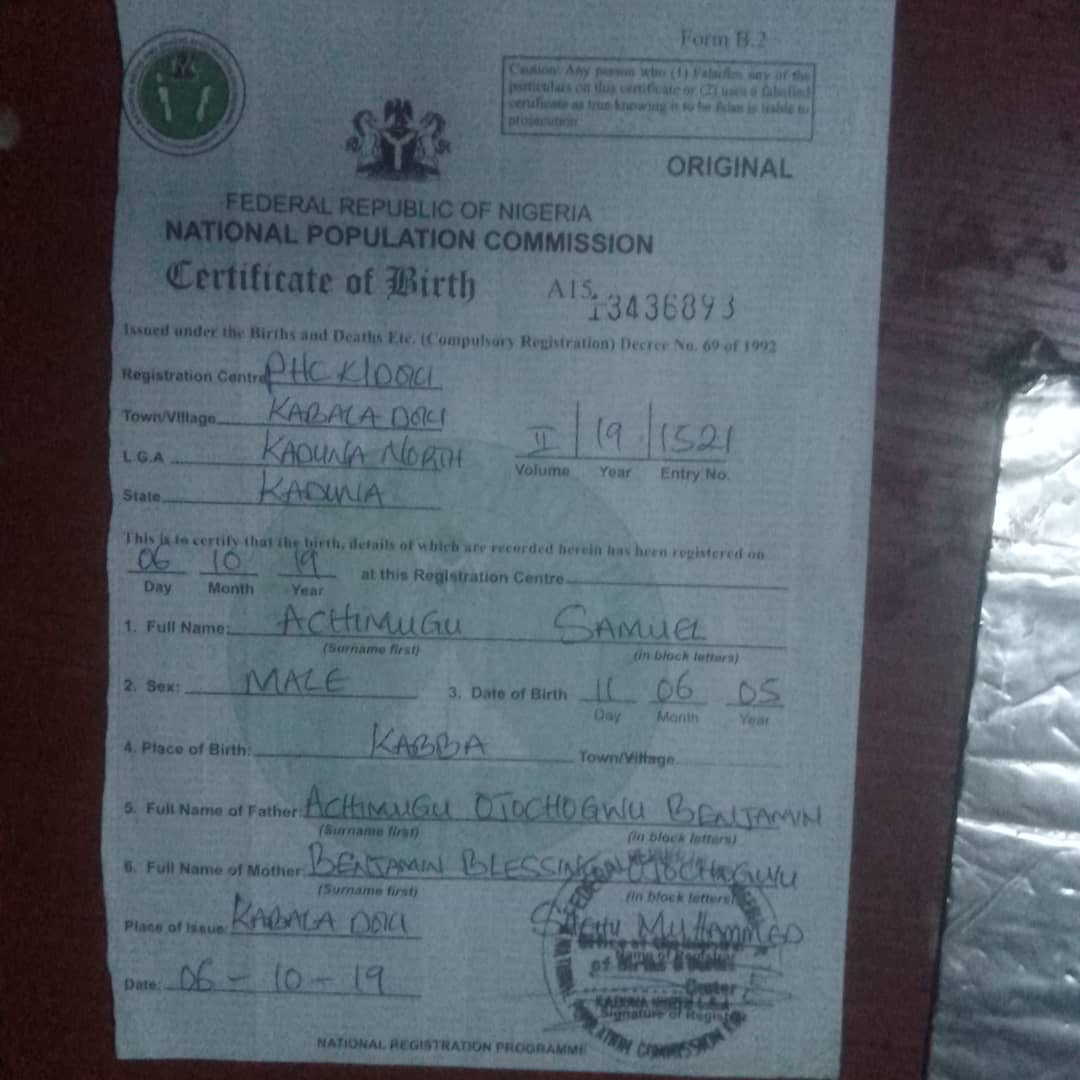 Form B.2
Caution: Any person who (1) Falsifies any of the
particulars on this certificate or (2) uses a falsified
certificate as true knowing it to be false is liable to
prosecution
ORIGINAL
FEDERAL REPUBLIC OF NIGERIA
NATIONAL POPULATION COMMISSION
Certificate of Birth
A15, 13436893
Issued under the Births and Deaths Etc. (Compulsory Registration) Decree No. 69 of 1992
Registration Centre PHC K/DOKI
Town/Village KABALA DOKI
L.G.A KADUNA NORTH
II 19 1521
Volume Year Entry No.
State KADUNA
This is to certify that the birth, details of which are recorded herein has been registered on
06 10 19 at this Registration Centre
Day Month Year
1. Full Name: ACHIMUGU SAMUEL
(Surname first) (in block letters)
2. Sex: MALE 3. Date of Birth 11 06 05
Day Month Year
4. Place of Birth: KABBA Town/Village
5. Full Name of Father: ACHIMUGU OJOCHOGWU BENJAMIN
(Surname first) (in block letters)
6. Full Name of Mother: BENJAMIN BLESSING OJOCHOGWU
(Surname first) (in block letters)
Place of Issue: KABALA DOKI
MUHAMMED
Name of Registrar
Date: 06 - 10 - 19
Signature of Registrar
NATIONAL REGISTRATION PROGRAMME